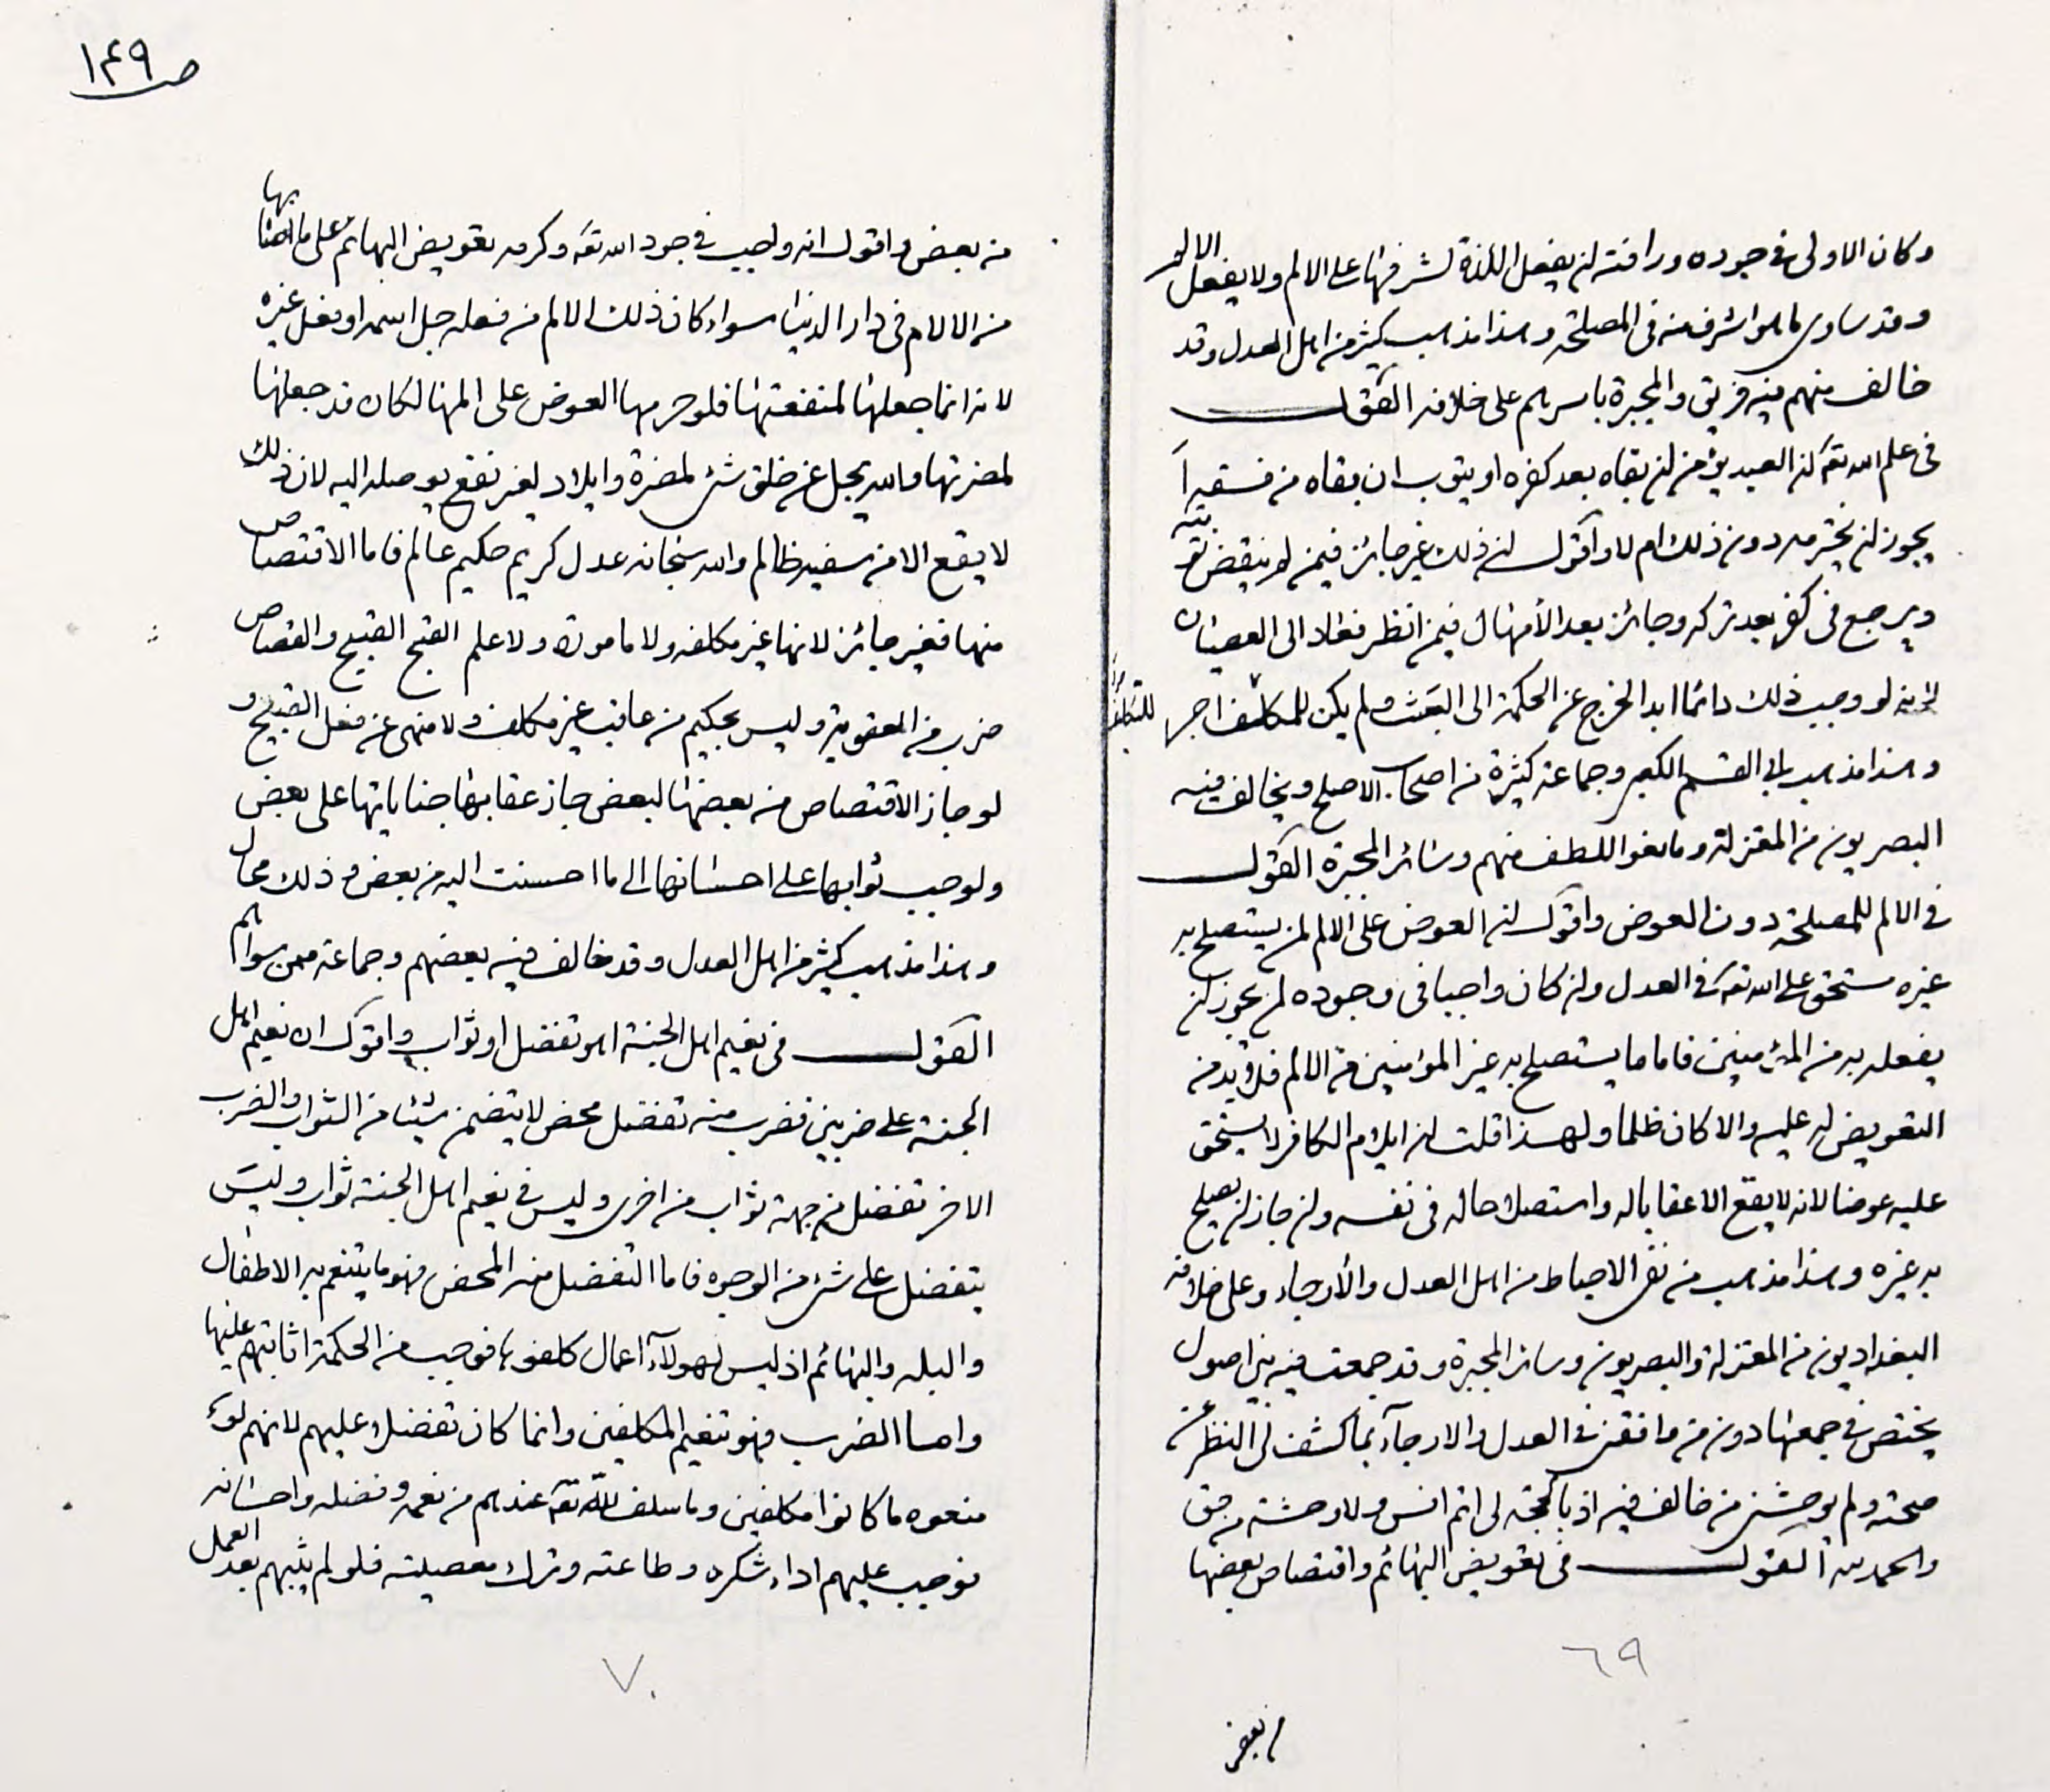 وكان الاولى فى جوده ورافته ان يفعل اللذة لشرفها على الالم ولا يفعل الالم
وقد ساوى ما هو اشرف منه فى المصلحة وهذا مذهب كثير من اهل العدل وقد
خالف منهم فيه فريق والمجبرة باسرهم على خلافه القول
فى علم الله تعـ ان العبد يؤمن ان بقاه بعد كفره او يتوب ان بقاه من فسقه أ
يجوز ان يخترمه دون ذلك ام لا واقول ان ذلك غير جائز فيمن لم ينقض توبته
ويرجع فى كفر بعد تركه وجائز بعد الأمهال فيمن انظر فعاد الى العصيان
لانه لو وجب ذلك دائما ابدا لخرج عن الحكمة الى العبث ولم يكن للمكلف اجر للتكليف
وهذا مذهب ابى القسم الكعبى وجماعة كثيرة من اصحاب الاصلح ويخالف فيه
البصريون من المعتزلة ومانعوا اللطف منهم وسائر المجبرة القول
فى الالم للمصلحة دون العوض واقول ان العوض على الالم لمن يستصلح به
غيره مستحق على الله تعـ فى العدل وان كان واجبا فى وجوده لمن يجوز ان
يفعله به من المؤمنين فاما ما يستصلح به غير المؤمنين من الالم فلا بد من
التعويض له عليه والا كان ظلما ولهذا قلت ان ايلام الكافر لا يستحق
عليه عوضا لانه لا يقع الا عقابا له واستصلاحا له فى نفسه وان جاز ان يصلح
به غيره وهذا مذهب من نفى الاحباط من اهل العدل والأرجاء وعلى خلافه
البغداديون من المعتزلة والبصريون وسائر المجبرة وقد جمعت فيه بين اصول
يختص فى جمعها دون من وافقنى فى العدل والارجاء بما كشف لى النظر عن
صحته ولم يوحشنى من خالف فيه اذ بالحجة لى اتم انس ولا وحشة من حق
والحمد لله القول فى تعويض البهائم واقتصاص بعضها
٦٩
من بعض
ص ١٤٩
من بعض واقول انه واجب فى جود الله تعـ وكرمه تعويض البهائم على ما اصابها
من الالام فى دار الدنيا سواء كان ذلك الالم من فعله جل اسمه او فعل غيره
لانه انما جعلها لمنفعتها فلو حرمها العوض على المها لكان قد جعلها
لمضرتها والله يجل عن خلق شئ لمضرة وايلام لغير نفع يوصله اليه لان ذلك
لا يقع الا من سفيه ظالم والله سبحانه عدل كريم حكيم عالم فاما الاقتصاص
منها فغير جائز لانها غير مكلفه ولا مامورة ولا علم القبح القبيح والقصاص
ضرب من العقوبة وليس بحكيم من عاقب غير مكلف ولا منهى عن فعل القبيح و
لو جاز الاقتصاص من بعضها لبعض جاز عقابها جناياتها على بعض
ولوجب ثوابها على احسانها الى ما احسنت اليه من بعض وذلك محال
وهذا مذهب كثير من اهل العدل وقد خالف فيه بعضهم وجماعة ممن سواهم
القول فى نعيم اهل الجنة اهو تفضل او ثواب واقول ان نعيم اهل
الجنة على ضربين فضرب منه تفضل محض لا يتضمن شيئا من الثواب والضرب
الاخر تفضل من جهة ثواب من اخرى وليس فى نعيم اهل الجنة ثواب وليس
بتفضل على شئ من الوجوه فاما التفضل منه المحض فهو ما يتنعم به الاطفال
والبله والبهائم اذ ليس لهولآء اعمال كلفوها فوجب من الحكمة اثابتهم عليها
واما الضرب فهو تنعيم المكلفين وانما كان تفضلا عليهم لانهم لو
منعوه ما كانوا مكلفين وما سلف لله تعـ عندهم من نعمه وفضله واحسانه
نوجب عليهم اداء شكره وطاعته وترك معصيته فلو لم يثبهم بعد العمل
٧٠